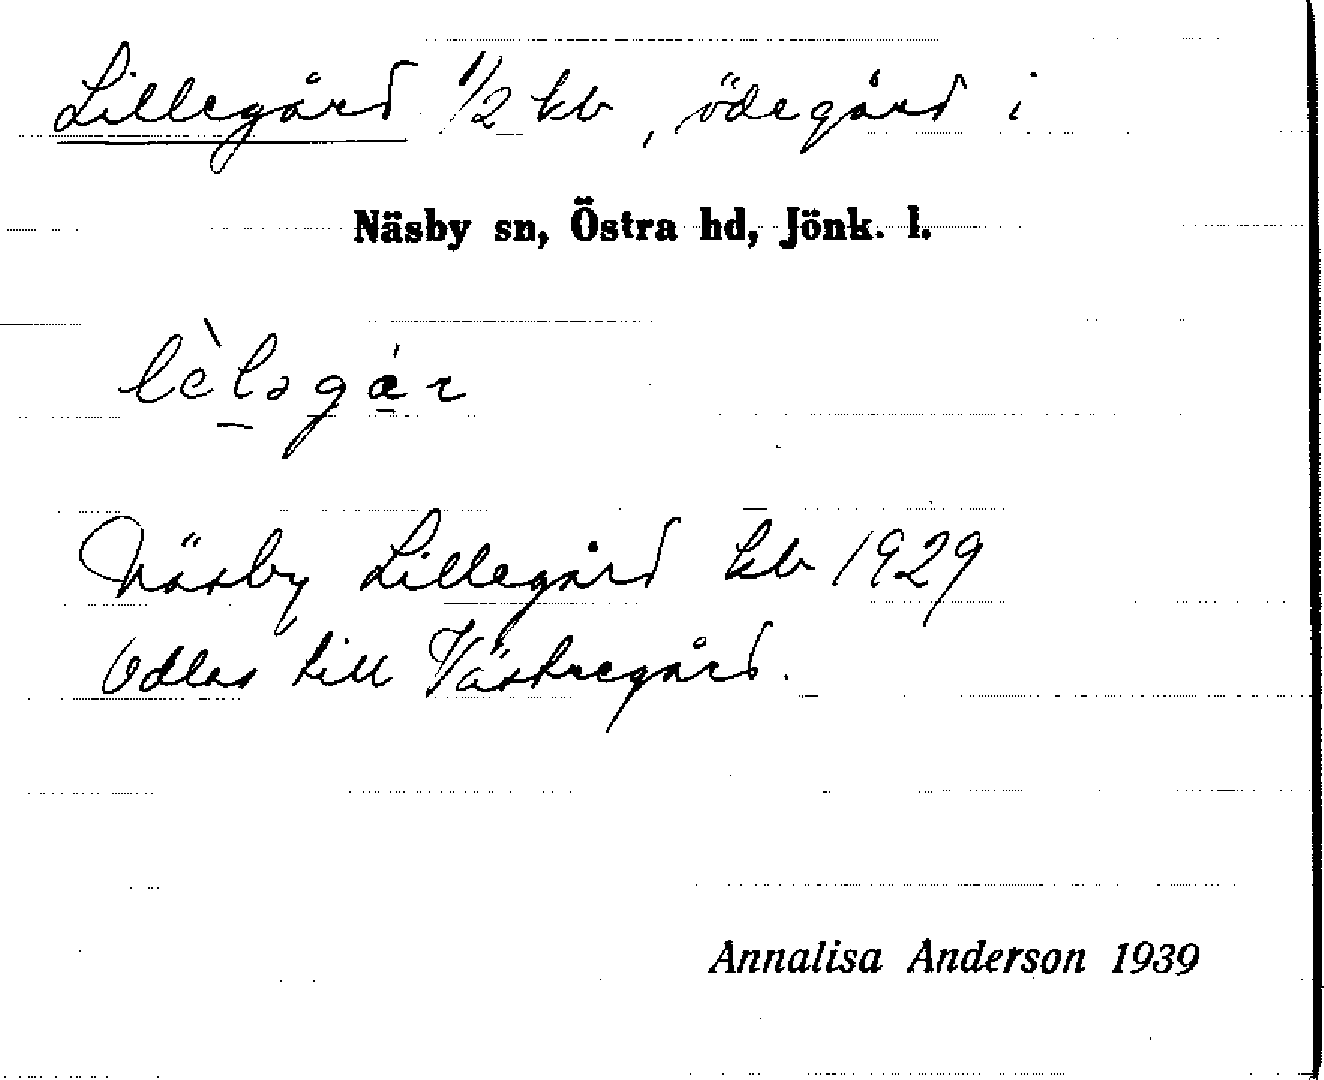 Lillegård 1/2 kb, ödegård i
Näsby sn, Östra hd, Jönk. l.
Näsby Lillegård kb 1929
Odlas till Västregård.
Annalisa Anderson 1939